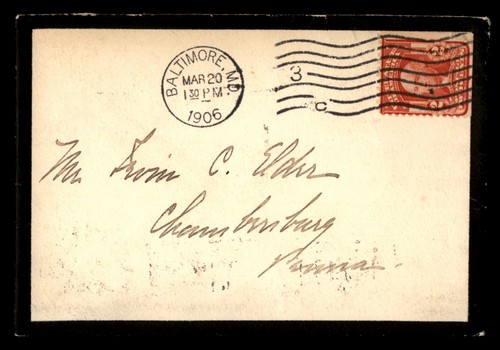 BALTIMORE, MD.
MAR 20
1 30 P M
1906
3
C
2 2
Mr Irvin C. Elder
Chambersburg
Penna.